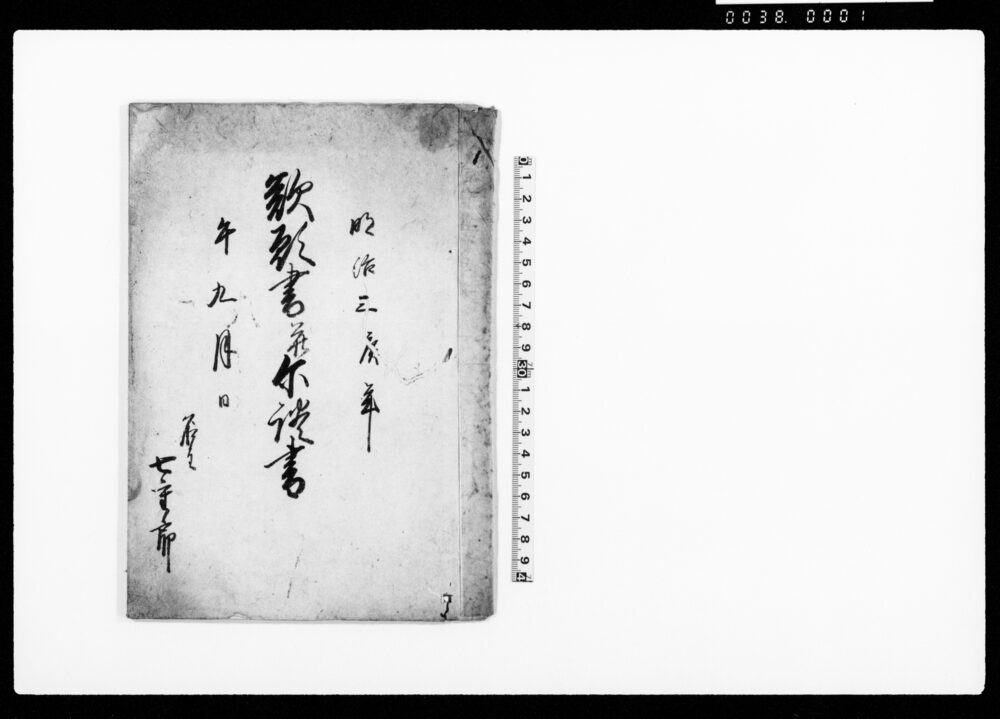 0038. 0001
明治三庚年
歎願書并示談書
午九月日
名主
七重郎
0 1 2 3 4 5 6 7 8 9 30 1 2 3 4 5 6 7 8 9 4